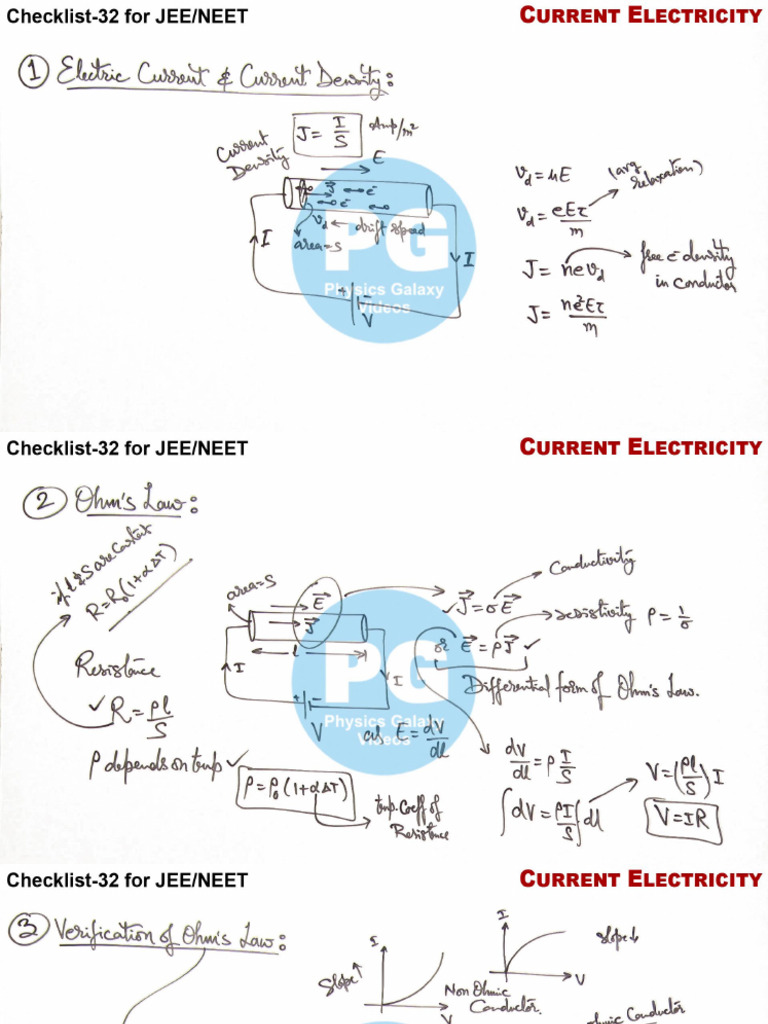 Checklist-32 for JEE/NEET
CURRENT ELECTRICITY
① Electric Current & Current Density:
J = I/S Amp/m²
Current Density
E
J e⁻
e⁻
v_d ← drift speed
area=S
I
I
+ -
V
PG
Physics Galaxy
Videos
v_d = μE
(avg relaxation)
v_d = eEτ/m
J = nev_d
free e⁻ density
in conductor
J = ne²Eτ/m
Checklist-32 for JEE/NEET
CURRENT ELECTRICITY
② Ohm's Law:
if l & S are constant
R=R₀(1+α∆T)
Resistance
✓ R = ρl/S
ρ depends on temp ✓
ρ = ρ₀(1+α∆T)
temp. Coeff of
Resistance
area=S
E
J
l
I
I
+ -
V
PG
Physics Galaxy
Videos
as E = dV/dl
Conductivity
✓ J = σE
resistivity ρ = 1/σ
or E = ρJ ✓
Differential form of Ohm's Law.
dV/dl = ρ I/S
∫dV = ρI/S ∫dl
V = (ρl/S) I
V = IR
Checklist-32 for JEE/NEET
CURRENT ELECTRICITY
③ Verification of Ohm's Law:
I
Slope↑
V
I
Slope↓
V
Non Ohmic
Conductor.
ohmic Conductor